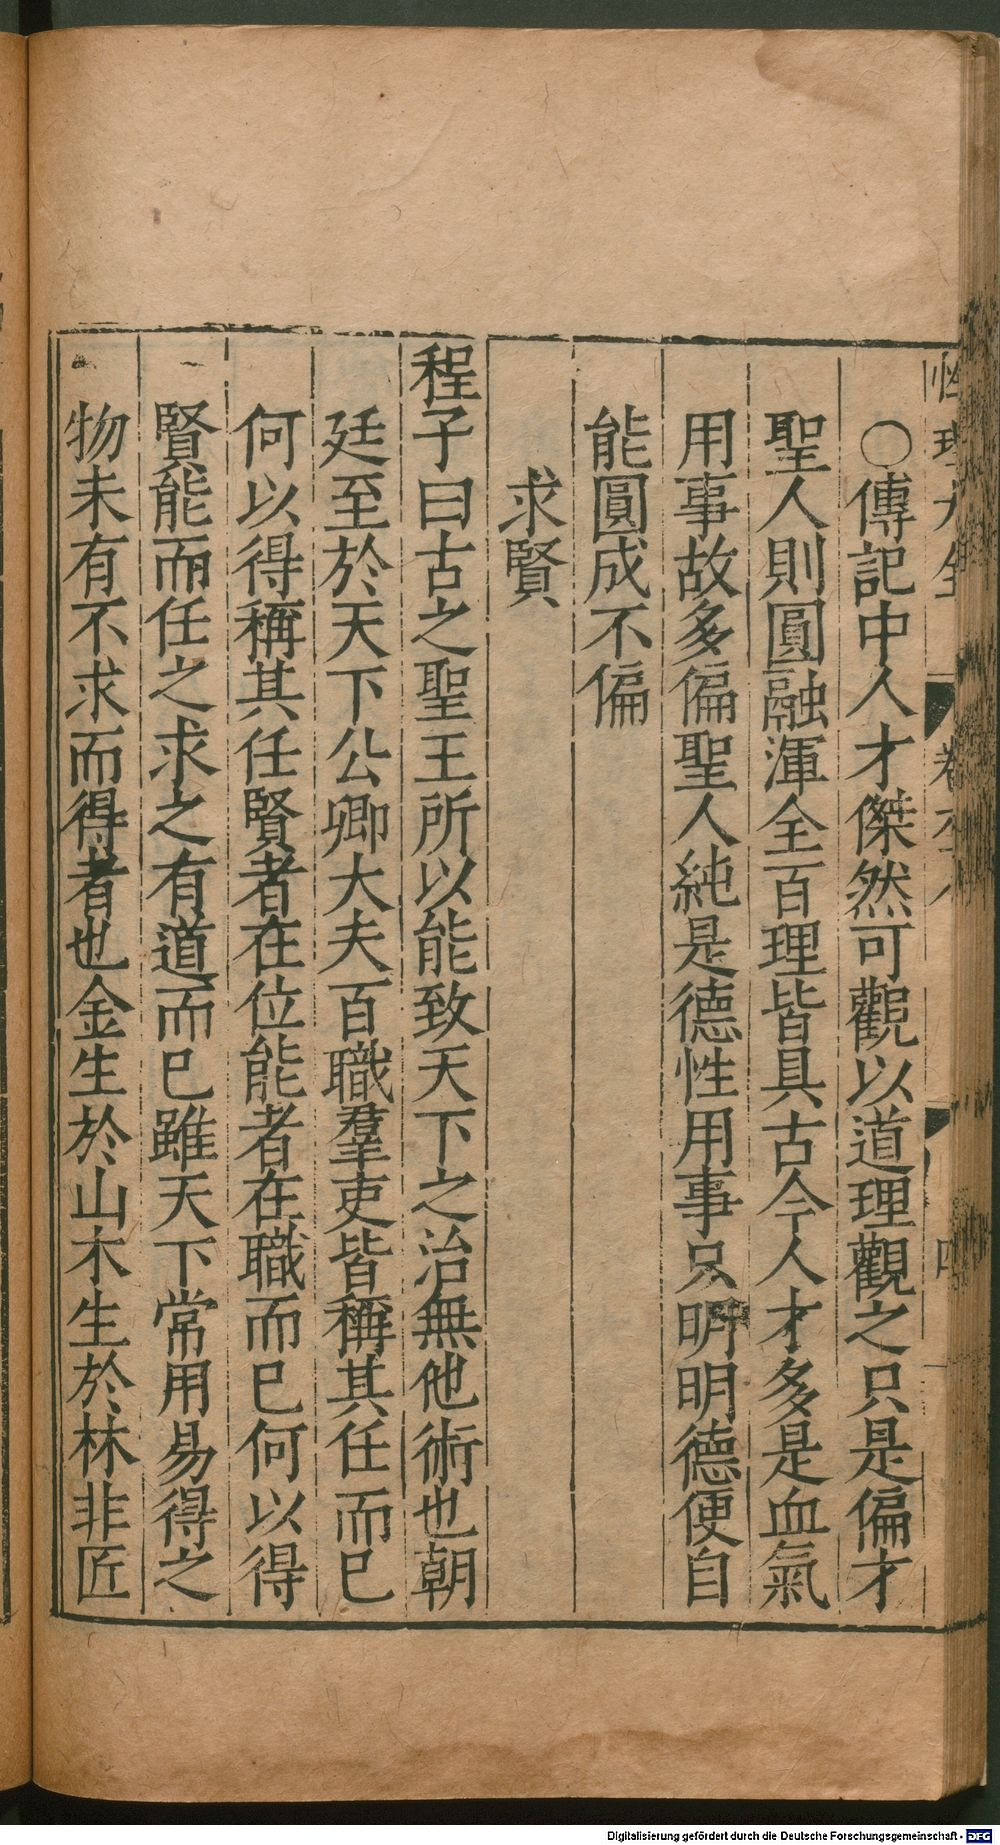 性理大全 卷六八 四
○傳記中人才傑然可觀以道理觀之只是偏才
聖人則圓融渾全百理皆具古今人才多是血氣
用事故多偏聖人純是德性用事只明明德便自
能圓成不偏
求賢
程子曰古之聖王所以能致天下之治無他術也朝
廷至於天下公卿大夫百職羣吏皆稱其任而已
何以得稱其任賢者在位能者在職而已何以得
賢能而任之求之有道而已雖天下常用易得之
物未有不求而得者也金生於山木生於林非匠
Digitalisierung gefördert durch die Deutsche Forschungsgemeinschaft - DFG